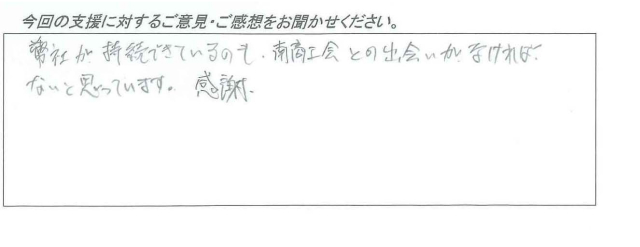 今回の支援に対するご意見・ご感想をお聞かせください。
弊社が持続できているのも、南商工会との出会いがなければ
ないと思っています。感謝、